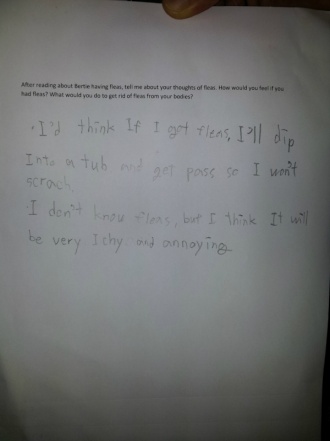 After reading about Bertie having fleas, tell me about your thoughts of fleas. How would you feel if you
had fleas? What would you do to get rid of fleas from your bodies?
· I'd think If I got fleas, I'll dip
Into a tub and get pass so I won't
scrach.
· I don't know fleas, but I think It will
be very Ichy and annoying